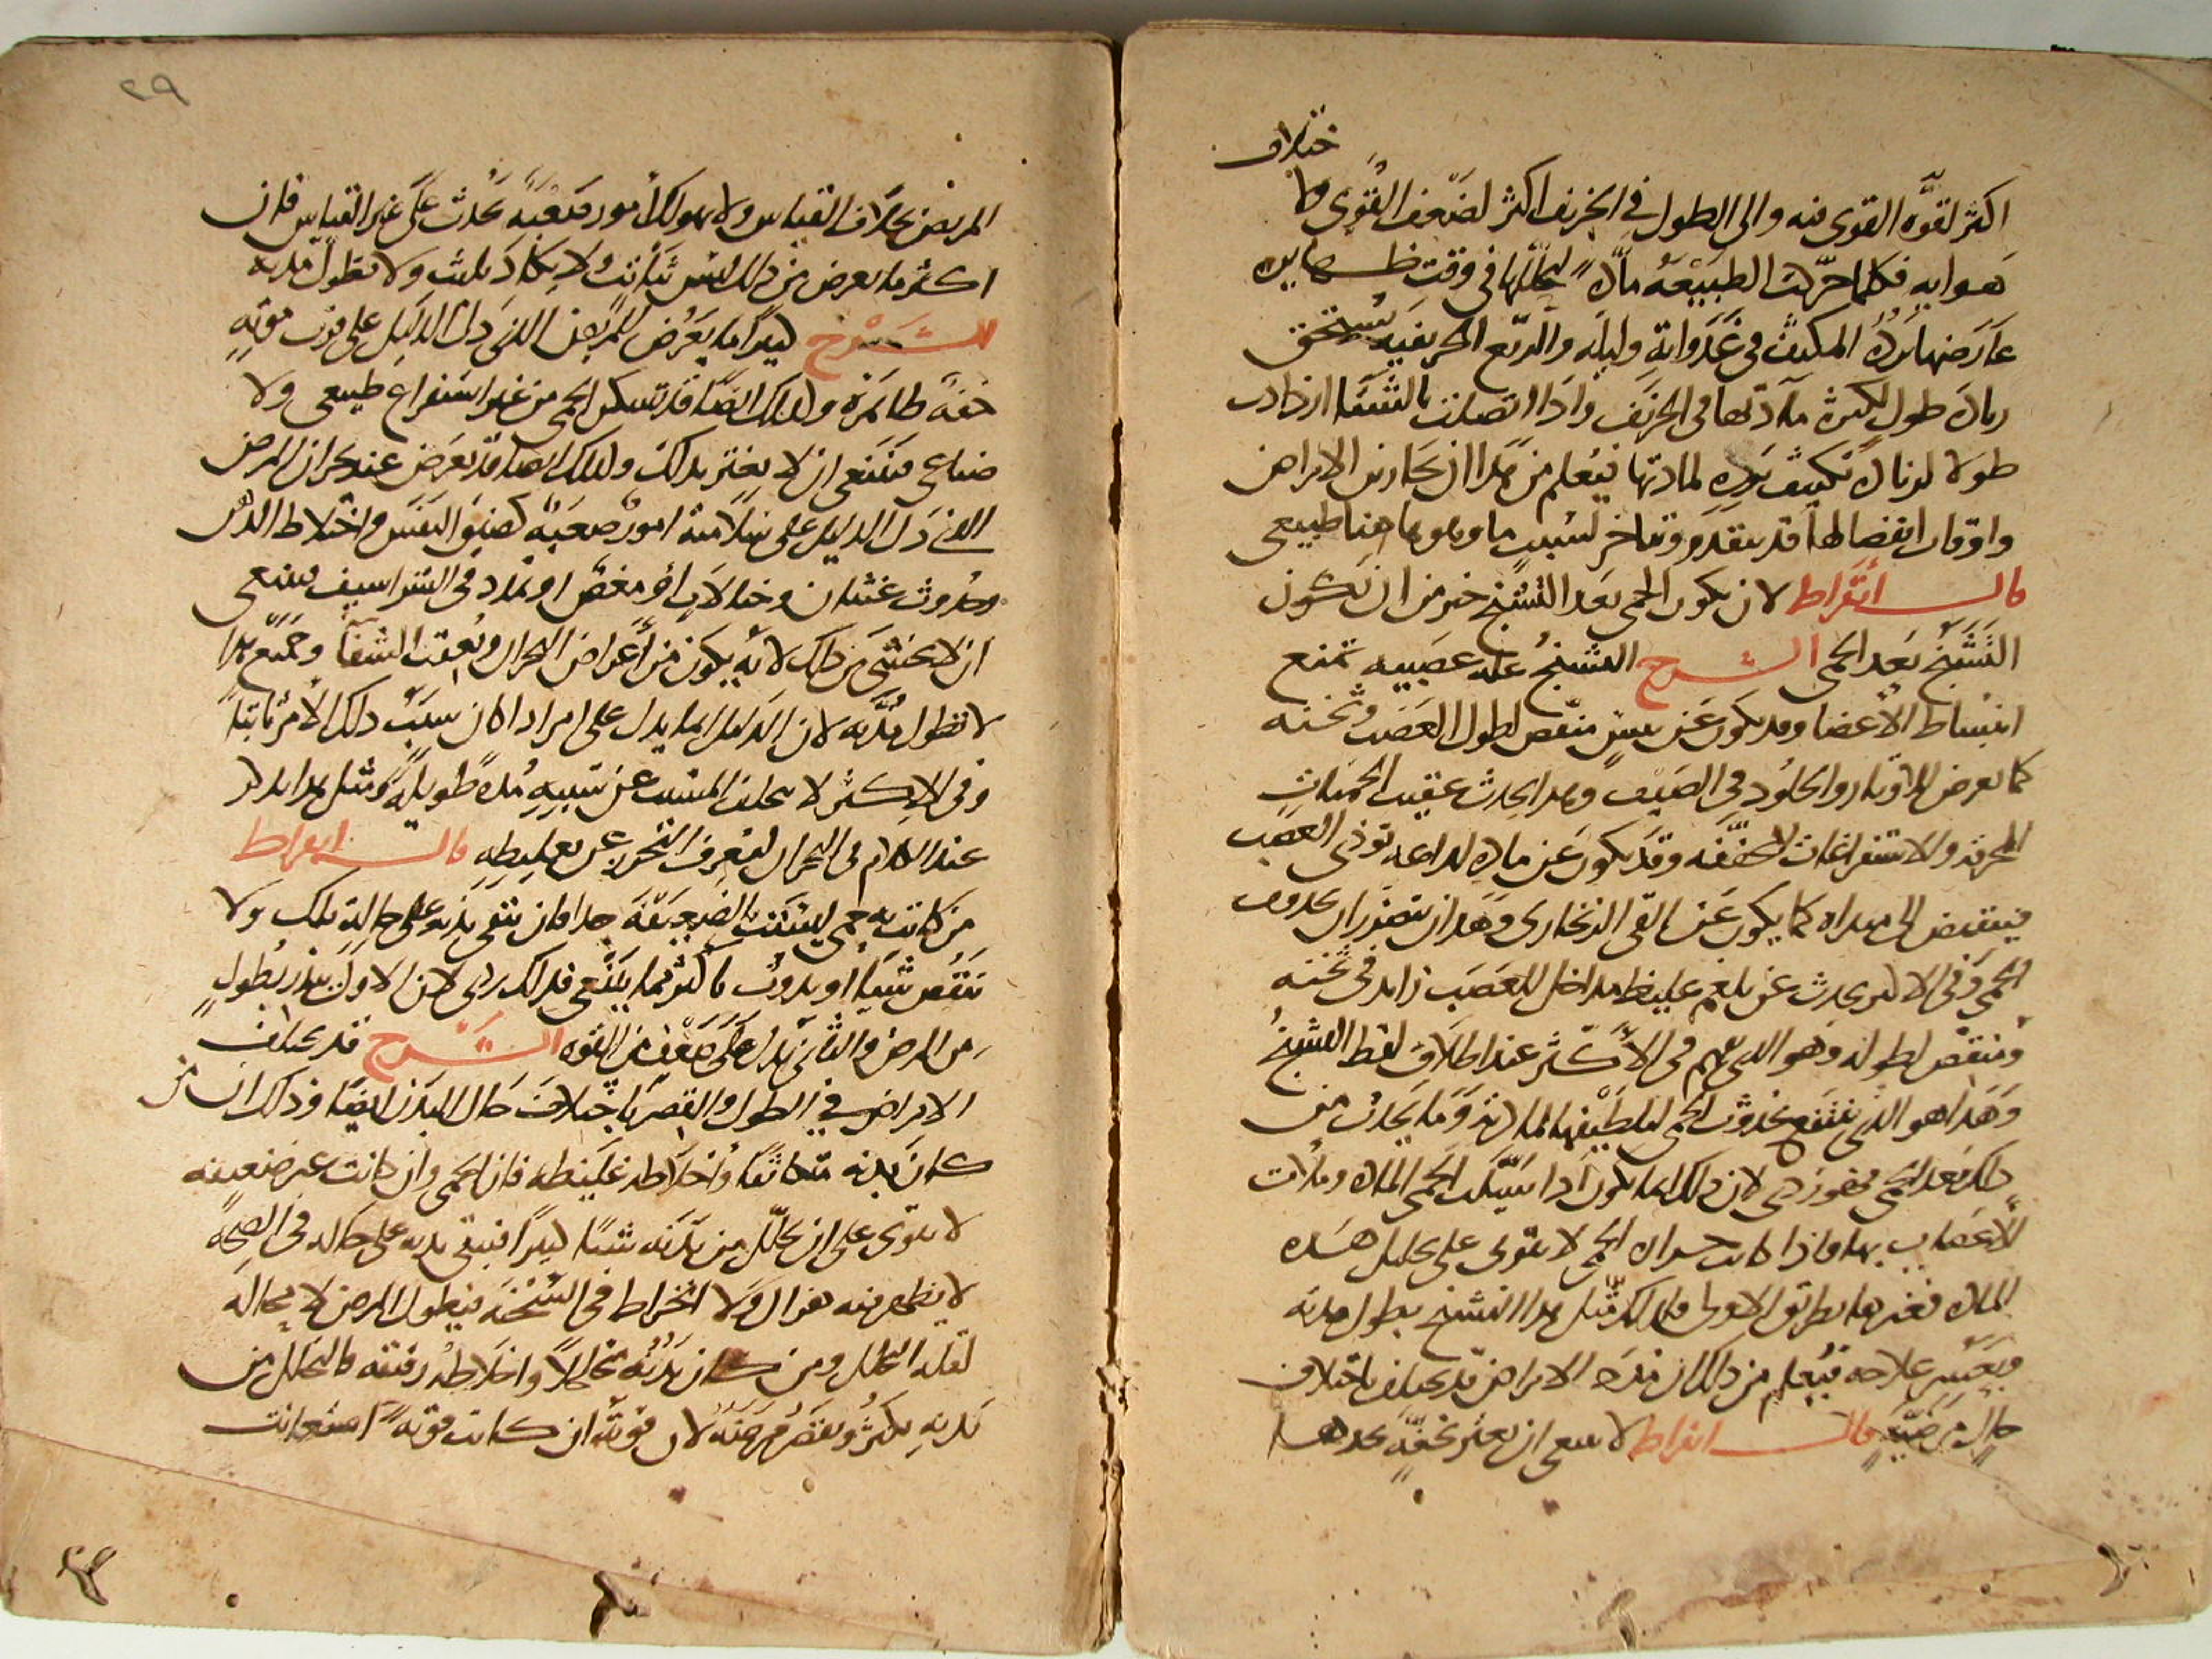 ختلاف
اكثر لقوة القوى فيه والى الطول في الخريف اكثر لضعف القوى
هوايه فكلما حركت الطبيعة مادة لتحللها في وقت
عارضها برد المكيف في غدواته وليله والربع الخريفيه
زيادة طول لكثرة مادتها في الخريف واذا اتصلت بالشتا ازدادت
طولا لزيادة تكثيف برده لمادتها فيعلم من هذا ان بحارين الامراض
واوقات انقضائها قد يتقدم ويتاخر لسبب ما وهو هاهنا طبيعي
قال ابقراط لان يكون الحمى بعد التشنج خير من ان يكون
التشنج بعد الحمى الشرح التشنج علة عصبيه تمنع
انبساط الأعضا وقد يكون عن يبس منقص لطول العصب وثخنه
كما يعرض للاوتار والجلود في الصيف وهذا يحدث عقيب الحميات
المحرقه والاستفراغات المجففه وقد يكون عن مادة لذاعه توذي العصب
فينقبض الى مبداه كما يكون عن القى الزنجاري وهذان يتضرران بحدوث
الحمى وفي الاكثر يحدث عن بلغم غليظ مداخل للعصب زايد في ثخنه
ومنقص لطوله وهو الذي يفهم في الأكثر عند اطلاق لفظ التشنج
وهذا هو الذي ينتفع بحدوث الحمى لتلطيفها لمادته وما يحدث من
ذلك بعد الحمى فهو ردى لان ذلك انما يكون اذا سيلت الحمى المادة وملات
الأعصاب بها واذا كانت حرارة الحمى لا تقوى على تحليل هذه
المادة فغيرها بطريق الاولى فلذلك مثل هذا التشنج يطول مدته
ويعسر علاجه فيعلم من ذلك ان مدة الامراض قد يختلف باختلاف
حال مرضية قال ابقراط لا ينبغي ان يغتر بخفة يجدها
٢٩
المريض بخلاف القياس ولا يهولك أمور صعبه تحدث على غير القياس فان
اكثر ما يعرض من ذلك ليس بثابت ولا يكاد يلبث ولا تطول مدته
الشرح كثيرا ما يعرض للمريض الذى دل الدليل على قرب موته
خفة ظاهرة وكذلك ايضا قد تسكن الحمى من غير استفراغ طبيعي ولا
صناعي فينبغي ان لا يغتر بذلك وكذلك ايضا قد يعرض عند بحران المرض
الذي دل الدليل على سلامته امور صعبة كضيق النفس واختلاط الذهن
وحدوث غشيان وخيالات او مغص او تمدد في الشراسيف فينبغي
ان لا يخشى من ذلك لانه يكون من أعراض البحران ويعقبه الشفا وجميع هذا
لا تطول مدته لان الدليل انما يدل على امر اذا كان سبب ذلك الأمر ثابتا
وفي الاكثر لا يتخلف المسبب عن سببه مدة طويلة ومثل هذا يذكر
عند الكلام في البحران ليعرف التحرز عن تغليطه قال ابقراط
من كانت به حمى ليست بالضعيفة جدا فان بقى بدنه على حاله تلك ولا
ينقص شيا او يذوب باكثر مما ينبغي فذلك ردى لان الاول ينذر بطول
من المرض والثاني يدل على ضعف من القوه الشرح قد يختلف
الامراض في الطول والقصر باختلاف حال البدن ايضا وذلك ان من
كان بدنه متكاثفا وأخلاطه غليظه فان الحمى وان كانت غير ضعيفه
لا يقوى على ان تحلل من بدنه شيئا كثيرا فيبقى بدنه على حاله في الصحة
لا يظهر فيه هزال ولا انخراط في السحنه فيطول المرض لا محاله
لقلة التحلل ومن كان بدنه متخلخلا واخلاطه رقيقه فالتحلل من
بدنه يكثر ويقصر مرضه لان قوته ان كانت قوته